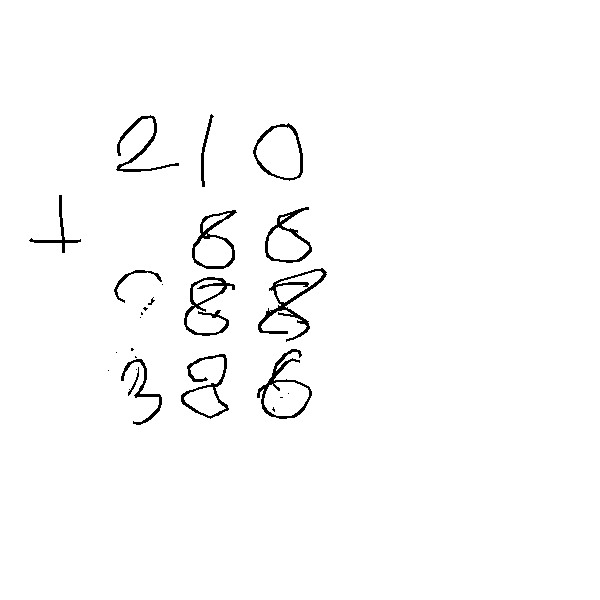 210
+ 88
88
386